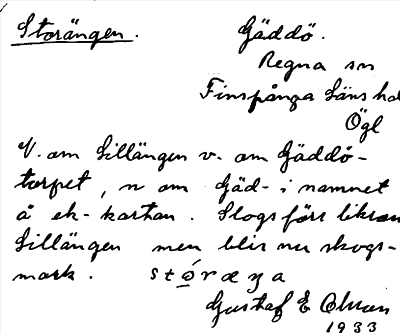 Storängen.
Gäddö.
Regna sn
Finspånga läns hd
Ögl
V. om Lillängen v. om Gäddö-
torpet, n om Gäd- i namnet
å ek-kartan. Slogs förr liksom
Lillängen men blir nu skogs-
mark. stó̤ræŋa
Gustaf E Olsson
1933